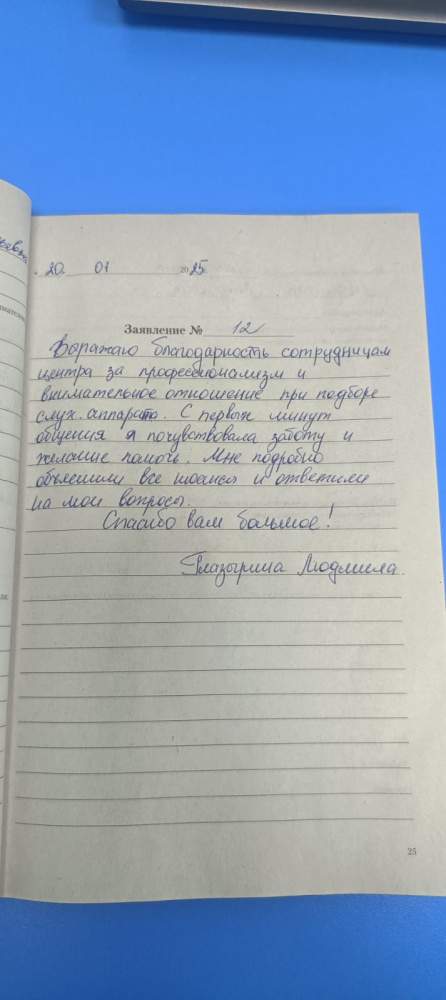 20 01 2025
Заявление № 12
Выражаю благодарность сотрудницам
центра за профессионализм и
внимательное отношение при подборе
слух. аппарата. С первых минут
общения я почувствовала заботу и
желание помочь. Мне подробно
объяснили все нюансы и ответили
на мои вопросы.
Спасибо вам большое!
Глазырина Людмила.
25